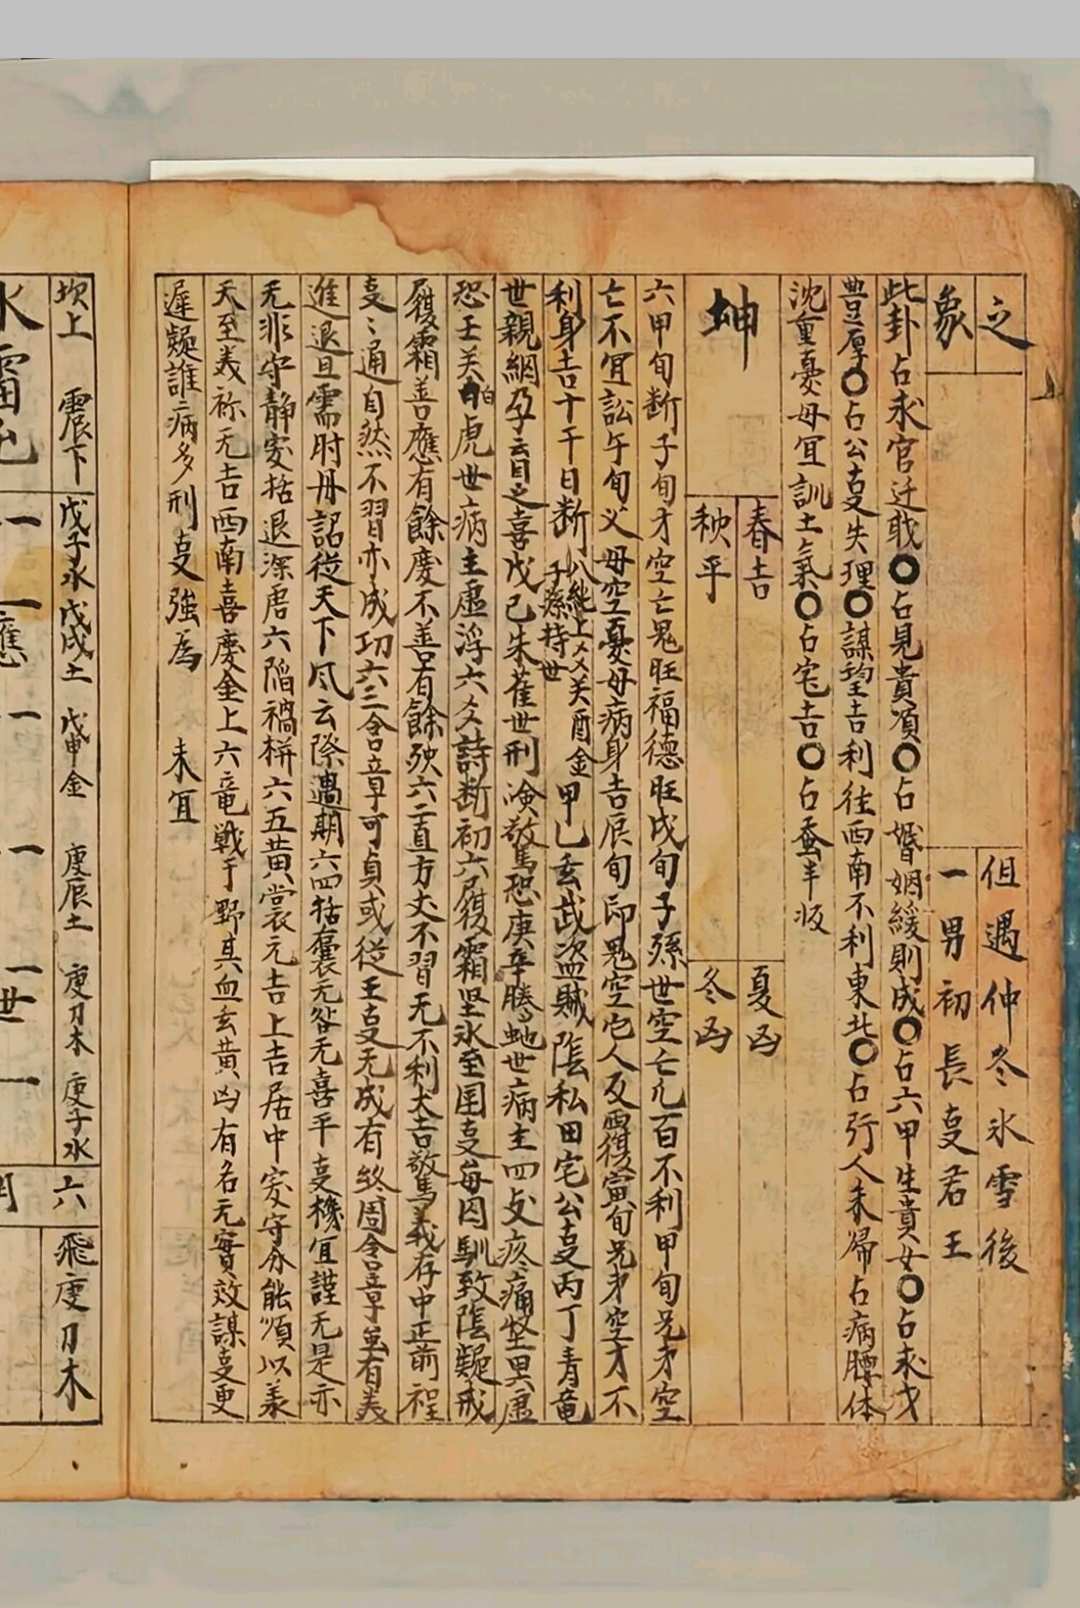 之
象
但遇仲冬氷雪後
一男初長㕝君王
此卦占求官迁职〇占見貴順〇占婚姻緩則成〇占六甲生貴女〇占求才
豊厚〇占公㕝失理〇謀望吉利往西南不利東北〇占行人未歸占病腰体
沈重憂母冝訓土氣〇占宅吉〇占蚕半收
坤
春吉
夏凶
秧平
冬凶
六甲旬断子旬才空亡鬼旺福德旺戌旬子孫世空亡凡百不利甲旬兄才空
亡不冝訟午旬父母空憂母病身吉辰旬印鬼空宅人反覆寅旬兄弟空才不
利身吉十干日断
八純上爻关酉金
子孫持世
甲乙玄武盗賊陰私田宅公㕝丙丁青竜
世親網孕云眚之喜戊己朱雀世刑燶驚恐庚辛騰虵世病主四支疼痛坚異虚
恐壬关白虎世病主虚浮六爻詩断初六履霜坚氷至国㕝每因馴致陰疑戒
履霜善應有餘慶不善有餘殃六二直方大不習无不利大吉驚義存中正前程
㕝〻通自然不習亦成功六三含章可貞或従王㕝无成有終周含章並有義
進退且需时毋詔從天下风云際遇期六四括囊无咎无喜平㕝機冝謹无是亦
无非守静安括退深居六陷禍栟六五黄裳元吉上吉居中安守分能順以義
天至美祢元吉西南喜慶金上六竜戦于野其血玄黄凶有名元實效謀㕝更
遲疑誰病多刑㕝強為 未冝
坎上 震下 戊子水 戊戌土 戊申金 庚辰土 庚刀木 庚子水 六 飛庚刀木
水雷屯 應 世